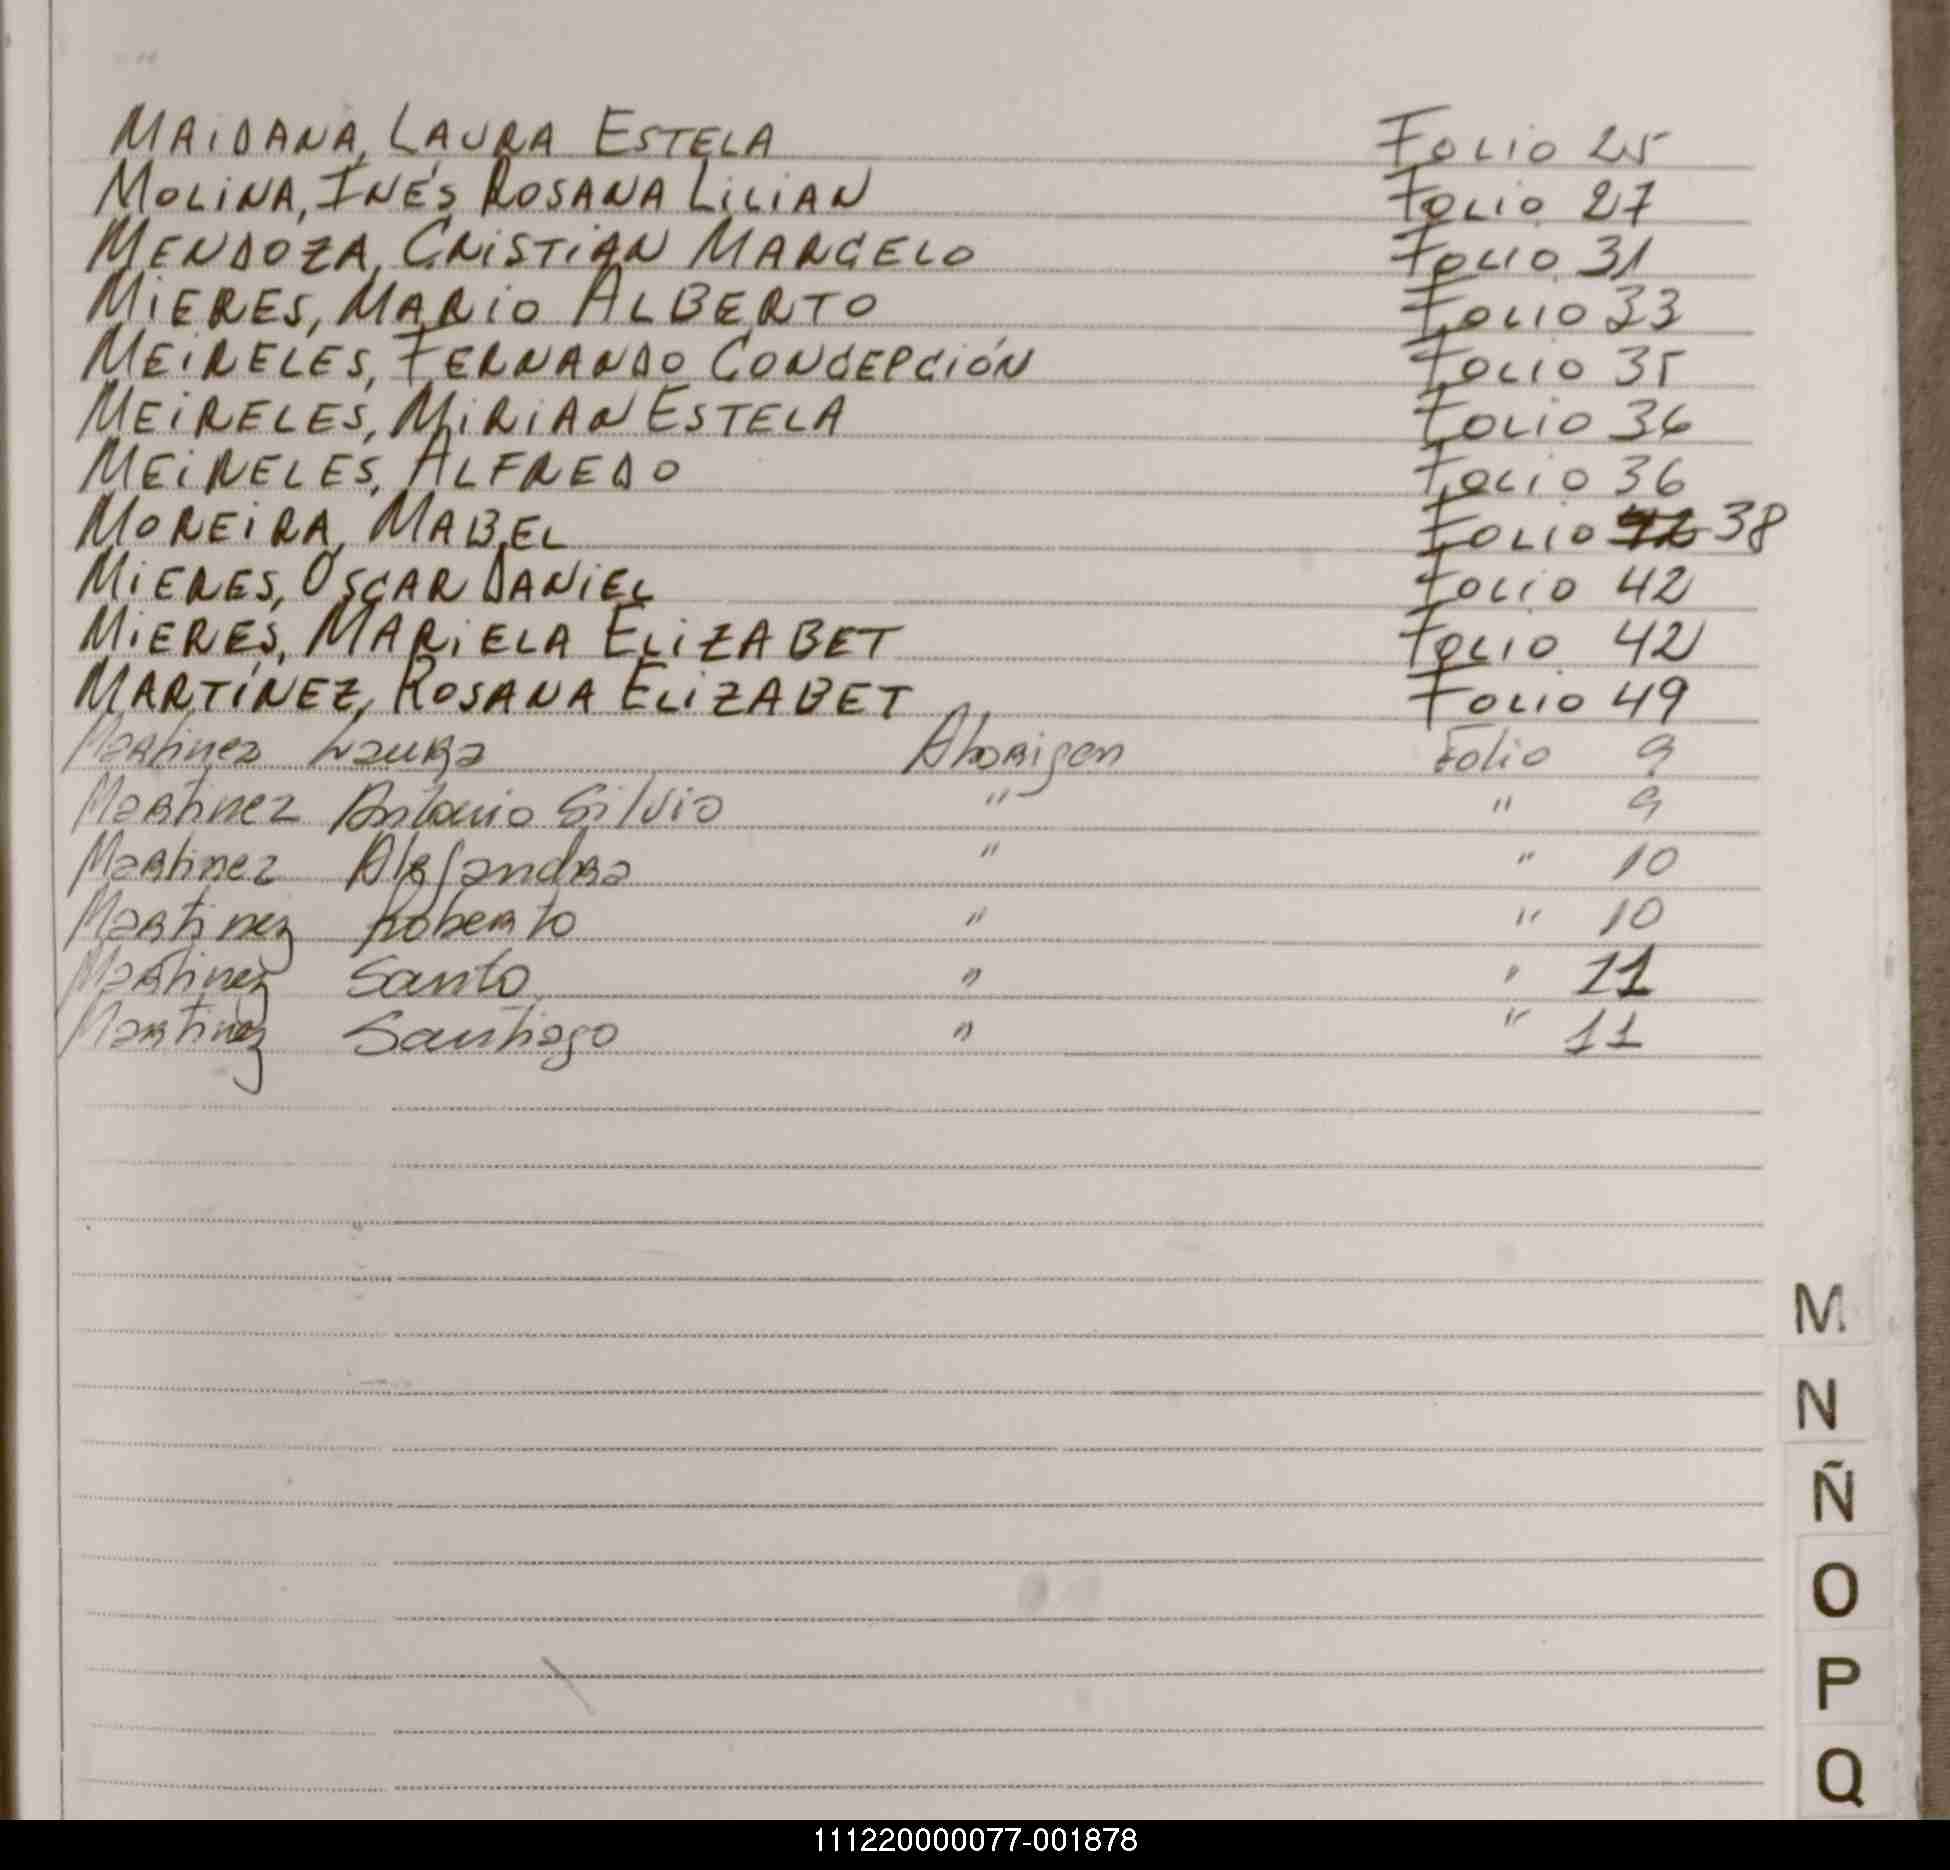 MAIDANA, LAURA ESTELA Folio 25
MOLINA, INÉS ROSANA LILIAN Folio 27
MENDOZA, CRISTIAN MARCELO Folio 31
MIERES, MARIO ALBERTO Folio 33
MEIRELES, FERNANDO CONCEPCIÓN Folio 35
MEIRELES, MIRIAN ESTELA Folio 36
MEIRELES, ALFREDO Folio 36
MOREIRA, MABEL Folio 42 38
MIERES, OSCAR DANIEL Folio 42
MIERES, MARIELA ELIZABET Folio 42
MARTÍNEZ, ROSANA ELIZABET Folio 49
Martinez Laura Aborigen Folio 9
Martinez Antonio Silvio " " 9
Martinez Alejandra " " 10
Martinez Roberto " " 10
Martinez Santo " " 11
Martinez Santiago " " 11
M
N
Ñ
O
P
Q
111220000077-001878